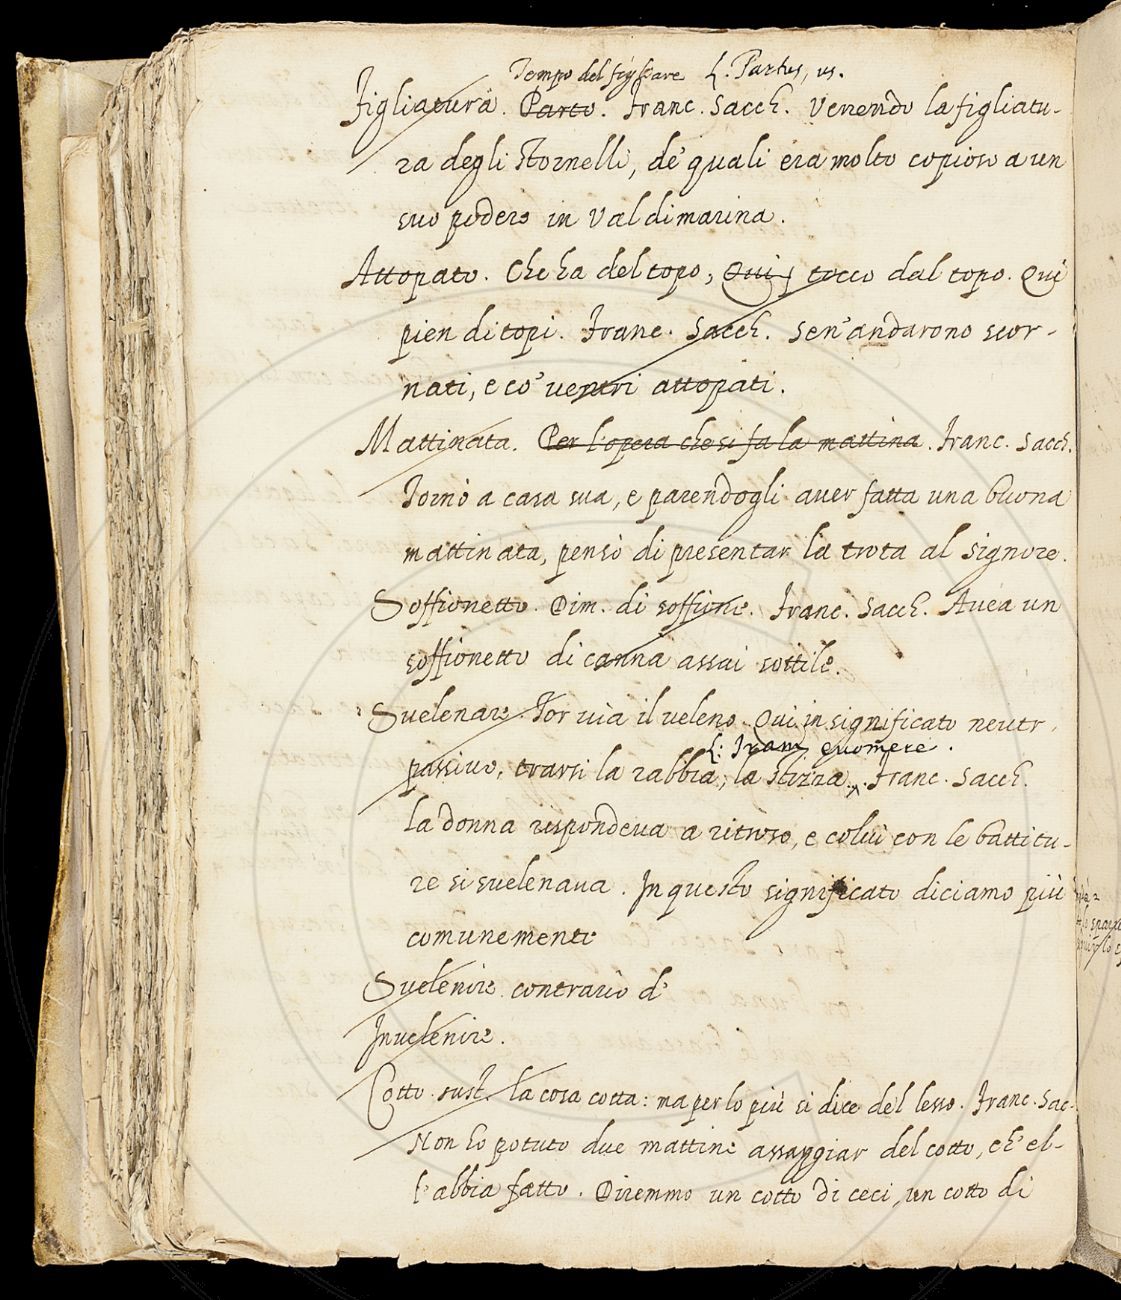 Tempo del figliare L. Partus, us.
Figliatura. Parto. Franc. Sacch. Venendo la figliatu-
ra degli stornelli, de' quali era molto copioso a un
suo podere in Valdimarina.
Attopato. Che ha del topo, Qui, tocco dal topo. Qui
pien di topi. Franc. Sacch. Sen'andarono scor-
nati, e co' ventri attopati.
Mattinata. Per l'opera che si fa la mattina. Franc. Sacch.
Tornò a casa sua, e parendogli aver fatta una buona
mattinata, pensò di presentar la trota al signore.
Soffionetto. Dim. di soffione. Franc. Sacch. Avea un
soffionetto di canna assai sottile.
Svelenare. Tor via il veleno. Qui in significato neutr.
L. Iram evomere.
passivo, trarsi la rabbia, la stizza. Franc. Sacch.
la donna rispondeva a ritroso, e colui con le battitu-
re si svelenava. In questo significato diciamo più
comunemente
Svelenire contrario d'
Invelenire.
Cotto. sust. la cosa cotta: ma per lo più si dice del lesso. Franc. Sac-
Non ho potuto due mattine assaggiar del cotto, ch' el-
l'abbia fatto. Diremmo un cotto di ceci, un cotto di